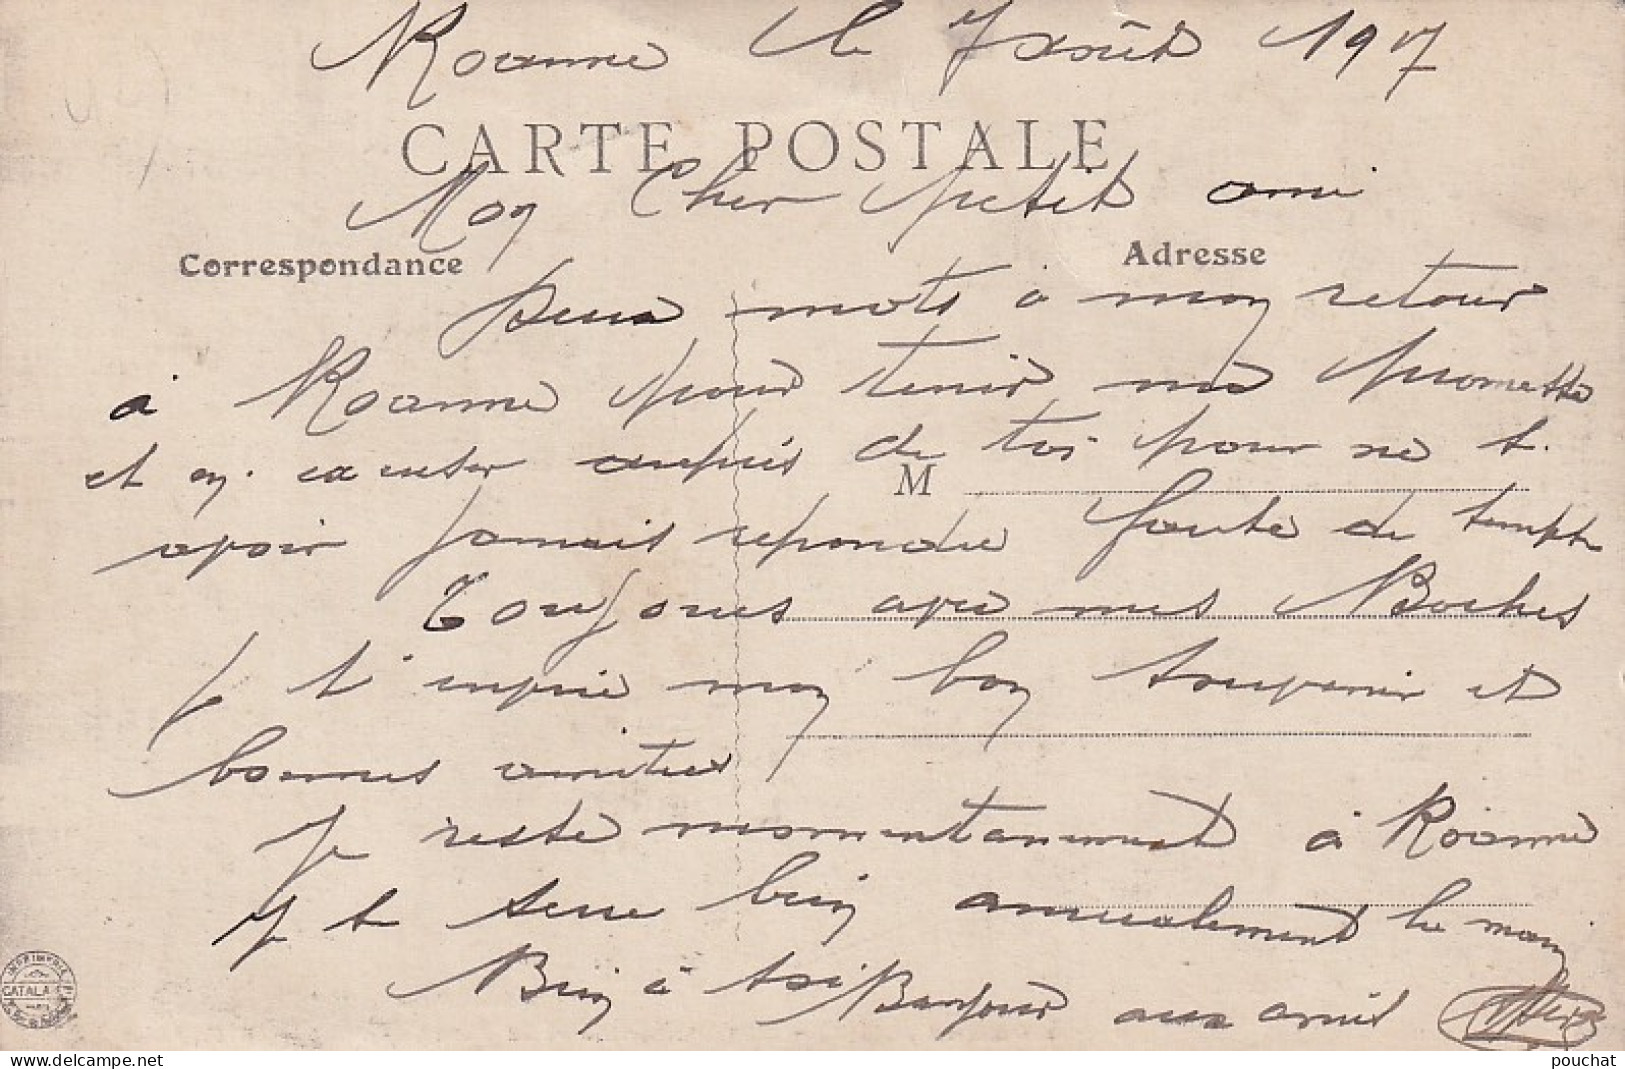 Roanne le 7 Août 1917
CARTE POSTALE
Mon Cher petit ami
Correspondance
Adresse
Deux mots à mon retour
à Roanne pour tenir ma promesse
et m'excuser auprès de toi pour ne t.
M
avoir jamais repondu faute de temps
Toujours avec mes Boches
Je t'envoie mon bon souvenir et
bonnes amitiés
Je reste momentanement à Roanne
Je te serre bien amicalement la main
Bien à toi Bonjour aux amis
IMPRIMERIE
CATALA
pouchat